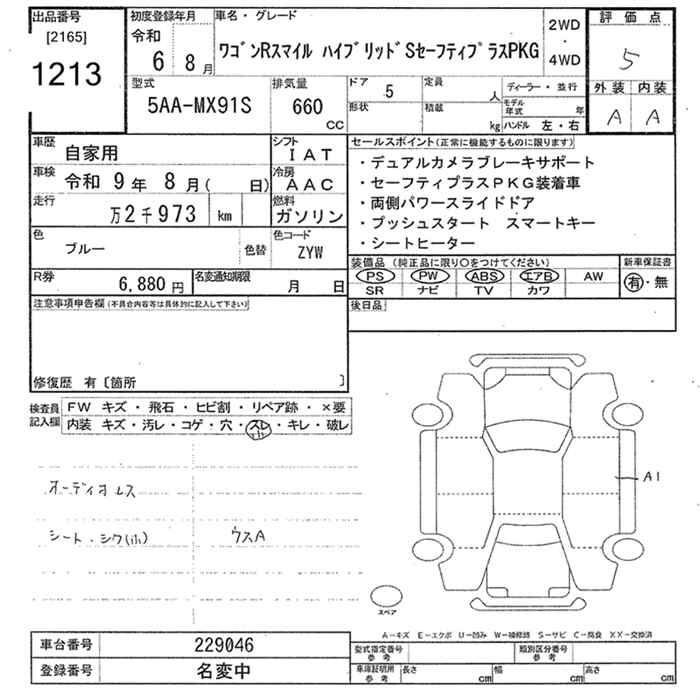 出品番号
[2165]
1213
初度登録年月
令和
6 8月
車名・グレード
ワゴンRスマイル ハイブリッドSセーフティプラスPKG
2WD
・
4WD
評価点
5
外装 内装
A A
型式
5AA-MX91S
排気量
660
CC
ドア
5
形状
定員
人
積載
kg
ディーラー・並行
モデル年式 年
ハンドル 左・右
車歴
自家用
シフト
IAT
車検
令和 9年 8月( 日)
冷房
AAC
走行
万2千973 km
燃料
ガソリン
色
ブルー
色替
色コード
ZYW
R券
6,880円
名変通知期限
月 日
セールスポイント(正常に機能するものに限ります)
・デュアルカメラブレーキサポート
・セーフティプラスPKG装着車
・両側パワースライドドア
・プッシュスタート スマートキー
・シートヒーター
装備品(純正品に限り○をつけてください)
PS PW ABS エアB AW
SR ナビ TV カワ
新車保証書
有・無
注意事項申告欄(不具合内容等は具体的に記入して下さい)
後日品
修復歴 有〔箇所 〕
検査員
記入欄
FW キズ・飛石・ヒビ割・リペア跡・×要
内装 キズ・汚レ・コゲ・穴・スレ・キレ・破レ
小
オーディオレス
シート・シワ(小) ウスA
A1
スペア
A-キズ E-エクボ U-凹み W-補修跡 S-サビ C-腐食 XX-交換済
車台番号
229046
登録番号
名変中
型式指定番号
参考
類別区分番号
参考
車庫証明用
参考
長さ cm
幅 cm
高さ cm